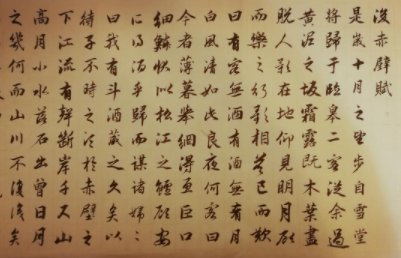 後赤壁賦
是歲十月之望步自雪堂
將歸于臨皋二客從余過
黃泥之坂霜露既木葉盡
脫人影在地仰見明月顧
而樂之行歌相答已而歎
曰有客無酒有酒無肴月
白風清如此良夜何客曰
今者薄暮舉網得魚巨口
細鱗狀似松江之鱸顧安
所得酒乎歸而謀諸婦〻
曰我有斗酒藏之久矣以
待子不時之需於赤壁之
下江流有聲斷岸千尺山
高月小水落石出曾日月
之幾何而山川不復矣